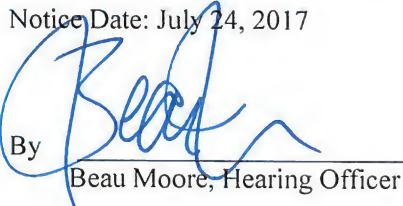 Notice Date: July 24, 2017
By
Beau Moore, Hearing Officer